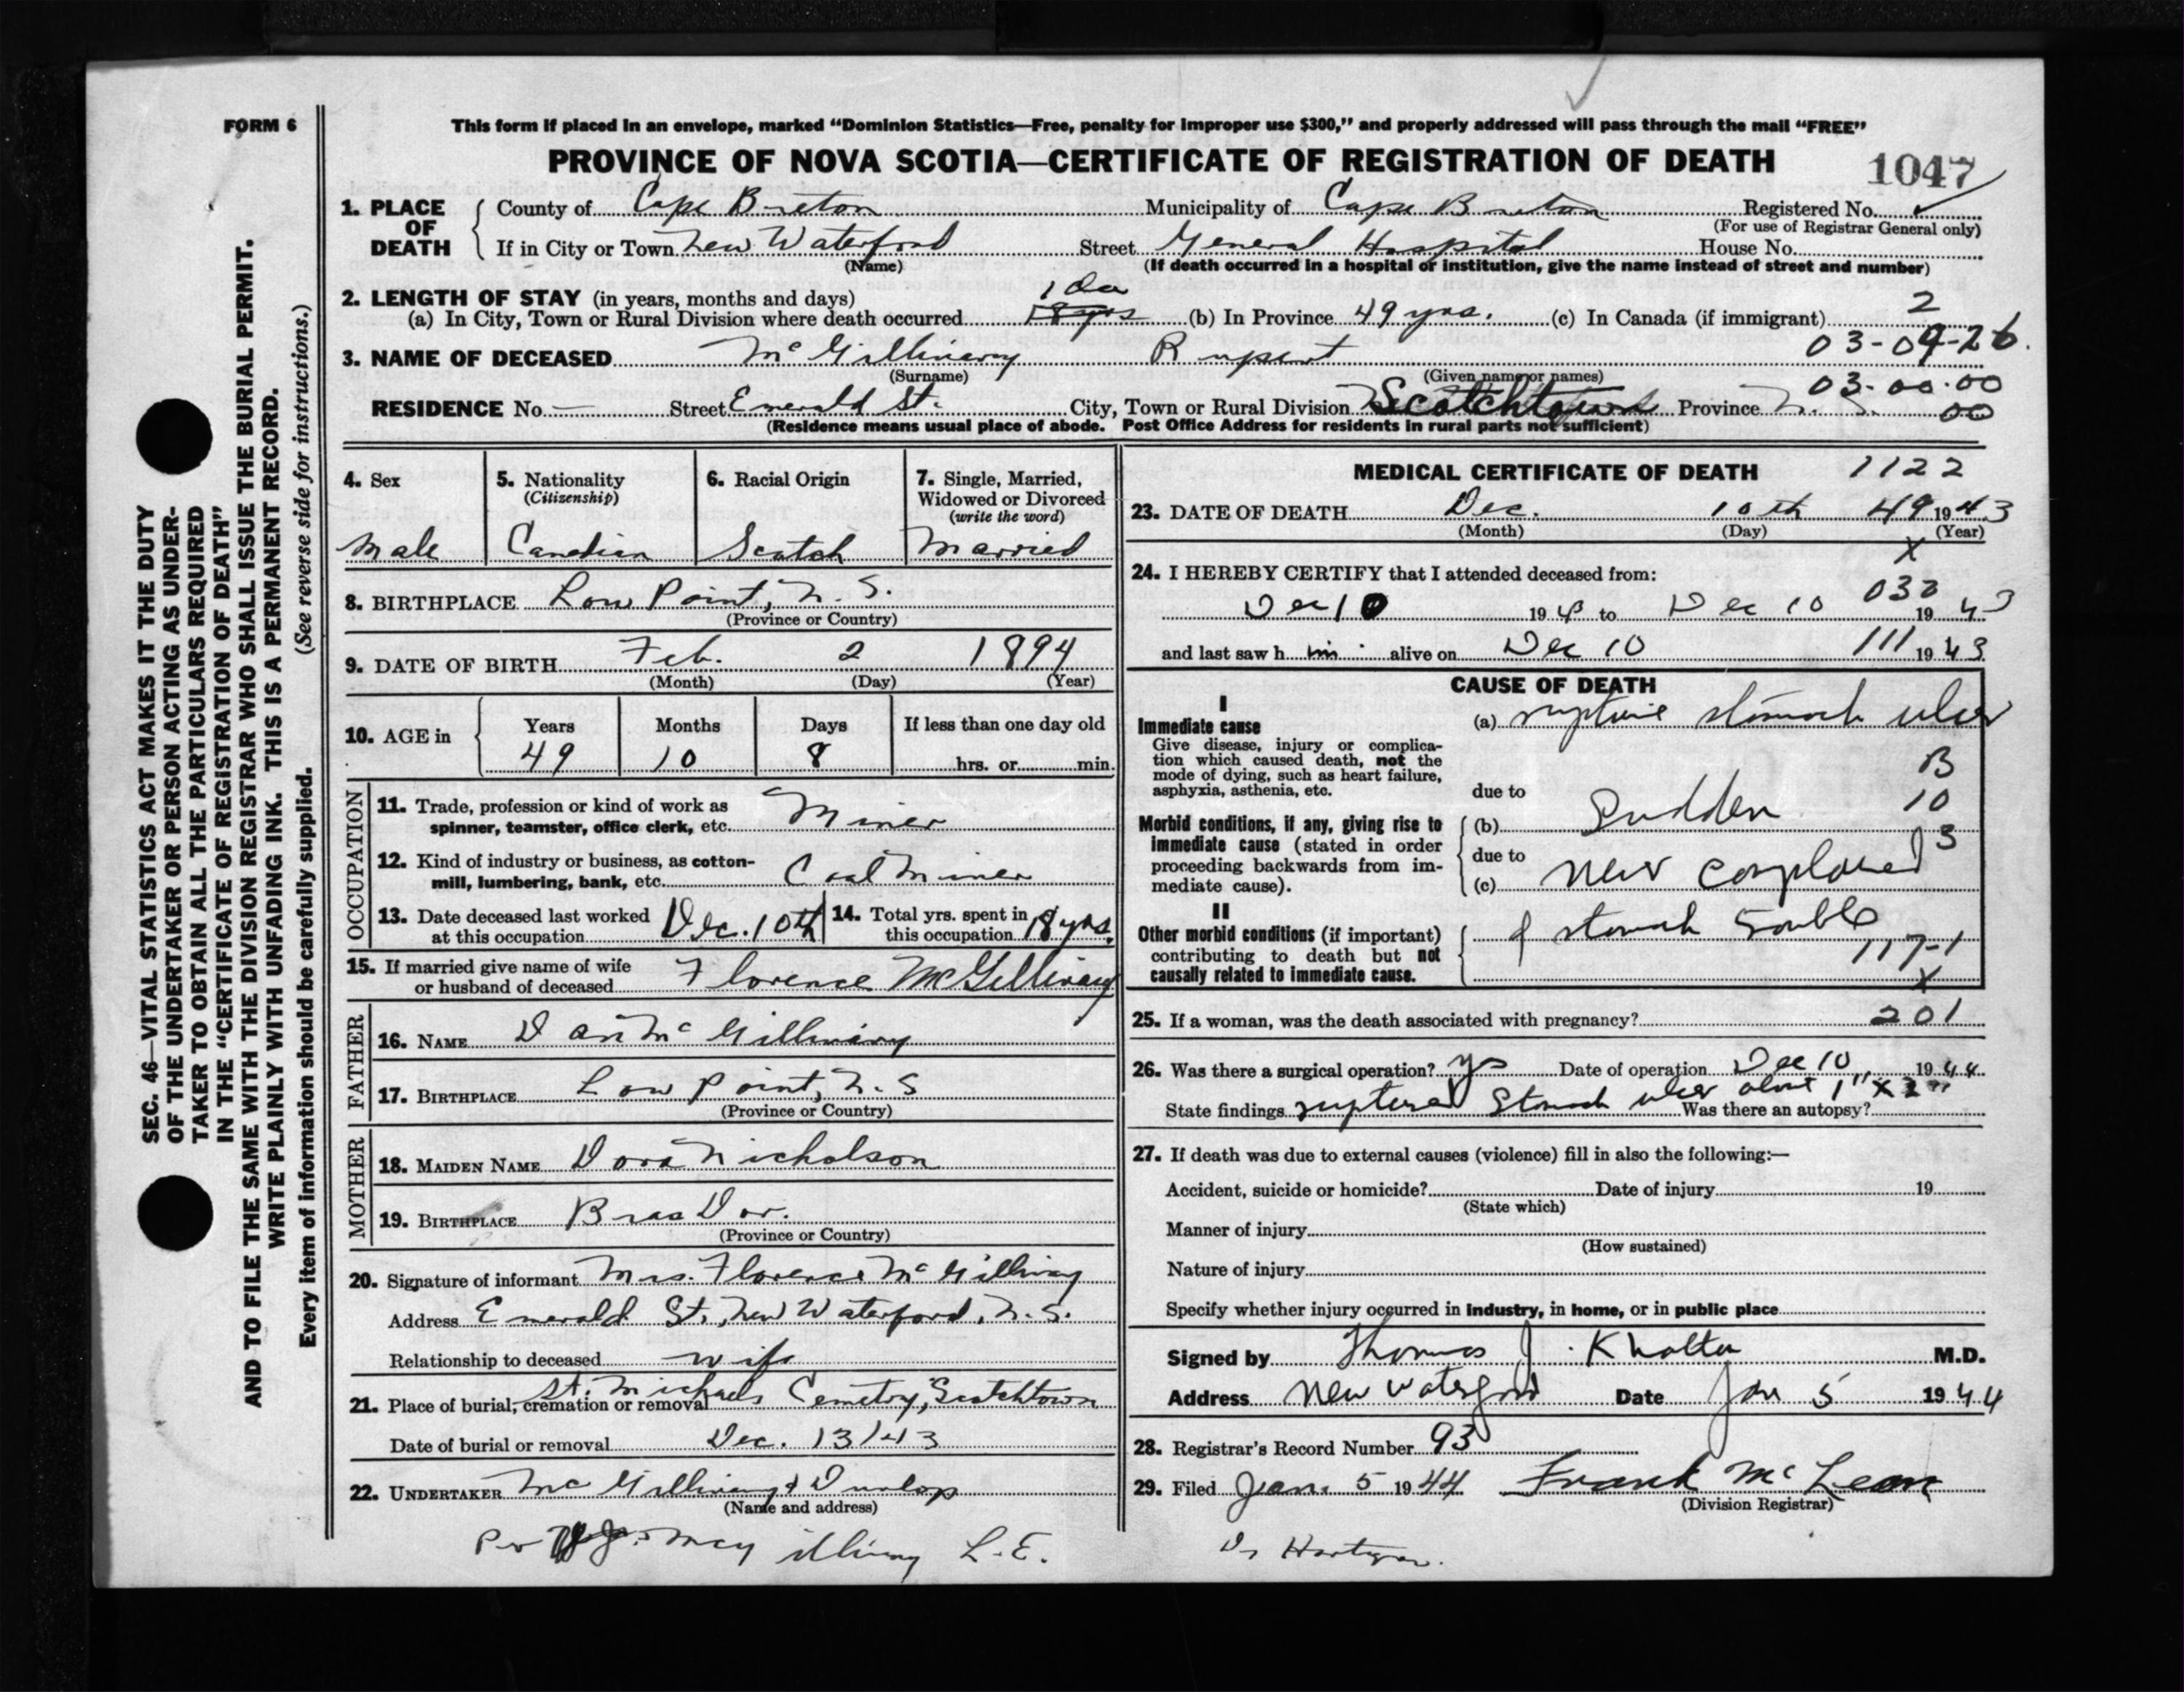 FORM 6
This form if placed in an envelope, marked "Dominion Statistics—Free, penalty for improper use $300," and properly addressed will pass through the mail "FREE"
PROVINCE OF NOVA SCOTIA—CERTIFICATE OF REGISTRATION OF DEATH
1047
1. PLACE OF DEATH
County of Cape Breton Municipality of Cape Breton Registered No.
(For use of Registrar General only)
If in City or Town New Waterford Street General Hospital House No.
(Name) (If death occurred in a hospital or institution, give the name instead of street and number)
2. LENGTH OF STAY (in years, months and days)
1 da
(a) In City, Town or Rural Division where death occurred 18 yrs (b) In Province 49 yrs. (c) In Canada (if immigrant) 2
03-09-26.
3. NAME OF DECEASED McGillivary Rupert
(Surname) (Given name or names)
03-00-00
RESIDENCE No. — Street Emerald St. City, Town or Rural Division Scotchtown Province N. S. 00
(Residence means usual place of abode. Post Office Address for residents in rural parts not sufficient)
4. Sex
Male
5. Nationality
(Citizenship)
Canadian
6. Racial Origin
Scotch
7. Single, Married, Widowed or Divorced
(write the word)
Married
8. BIRTHPLACE Low Point, N. S.
(Province or Country)
9. DATE OF BIRTH Feb. 2 1894
(Month) (Day) (Year)
10. AGE in
Years Months Days If less than one day old
49 10 8 hrs. or min.
OCCUPATION
11. Trade, profession or kind of work as
spinner, teamster, office clerk, etc. Miner
12. Kind of industry or business, as cotton-
mill, lumbering, bank, etc. Coal Miner
13. Date deceased last worked
at this occupation Dec. 10th
14. Total yrs. spent in
this occupation 18 yrs.
15. If married give name of wife
or husband of deceased Florence McGillivary
FATHER
16. NAME Dan McGillivary
17. BIRTHPLACE Low Point, N. S
(Province or Country)
MOTHER
18. MAIDEN NAME Dora Nicholson
19. BIRTHPLACE Bras Dor.
(Province or Country)
20. Signature of informant Mrs. Florence McGillivary
Address Emerald St., New Waterford, N. S.
Relationship to deceased wife
21. Place of burial, cremation or removal St. Michaels Cemetry, Scotchtown
Date of burial or removal Dec. 13/43
22. UNDERTAKER McGillivary & Dunlop
(Name and address)
L. E.
MEDICAL CERTIFICATE OF DEATH 1122
23. DATE OF DEATH Dec. 10th 49 1943
(Month) (Day) (Year)
X
24. I HEREBY CERTIFY that I attended deceased from:
Dec 10 1943 to Dec 10 1943
and last saw h im alive on Dec 10 111 1943
CAUSE OF DEATH
I
Immediate cause
Give disease, injury or complica-
tion which caused death, not the
mode of dying, such as heart failure,
asphyxia, asthenia, etc.
(a) rupture stomach ulcer
B
due to
10
Morbid conditions, if any, giving rise to
immediate cause (stated in order
proceeding backwards from im-
mediate cause).
(b) Sudden
3
due to
(c) never complained
II
Other morbid conditions (if important)
contributing to death but not
causally related to immediate cause.
of stomach trouble
117-1
X
25. If a woman, was the death associated with pregnancy? 201
26. Was there a surgical operation? yes Date of operation Dec 10 1944
State findings ruptured Stomach ulcer about 1" x 2" Was there an autopsy?
27. If death was due to external causes (violence) fill in also the following:—
Accident, suicide or homicide? Date of injury 19
(State which)
Manner of injury
(How sustained)
Nature of injury
Specify whether injury occurred in industry, in home, or in public place
Signed by Thomas J. M.D.
Address New Waterford Date Jan 5 1944
28. Registrar's Record Number 93
29. Filed Jan. 5 1944 Frank McLean
(Division Registrar)
Dr Hartigan.
SEC. 46—VITAL STATISTICS ACT MAKES IT THE DUTY
OF THE UNDERTAKER OR PERSON ACTING AS UNDER-
TAKER TO OBTAIN ALL THE PARTICULARS REQUIRED
IN THE "CERTIFICATE OF REGISTRATION OF DEATH"
AND TO FILE THE SAME WITH THE DIVISION REGISTRAR WHO SHALL ISSUE THE BURIAL PERMIT.
WRITE PLAINLY WITH UNFADING INK. THIS IS A PERMANENT RECORD.
Every item of information should be carefully supplied. (See reverse side for instructions.)